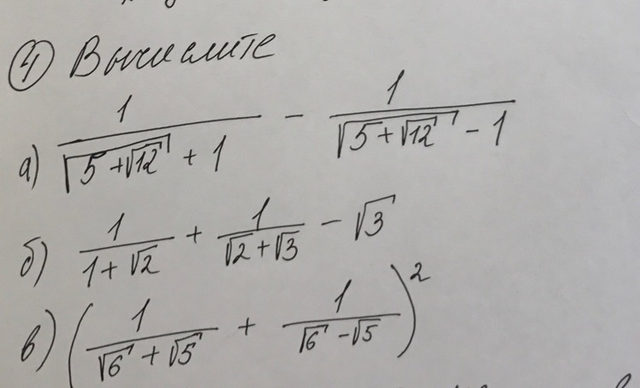 ④ Вычислите
а) 1/(√(5+√12) + 1) − 1/(√(5+√12) − 1)
б) 1/(1+√2) + 1/(√2+√3) − √3
в) (1/(√6+√5) + 1/(√6−√5))²